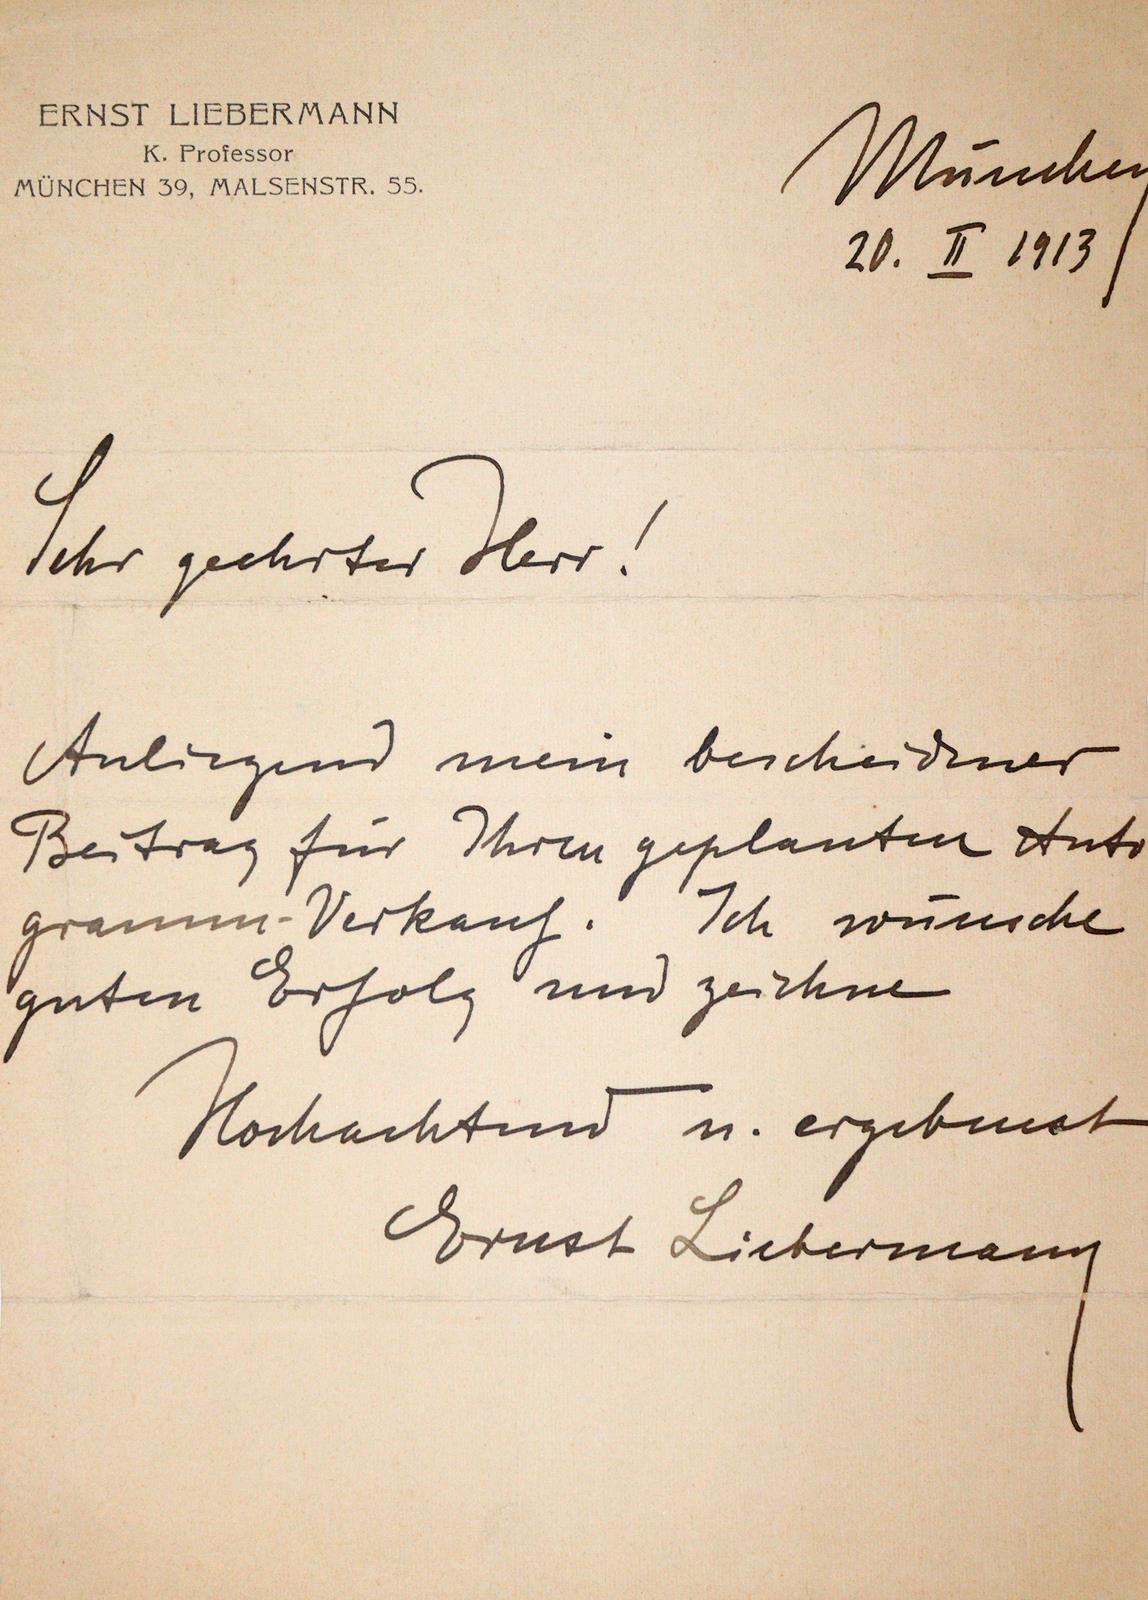 ERNST LIEBERMANN
K. Professor
MÜNCHEN 39, MALSENSTR. 55.
München
20. II 1913
Sehr geehrter Herr!
Anliegend mein bescheidener
Beitrag für Ihren geplanten Auto
gramm-Verkauf. Ich wünsche
guten Erfolg und zeichne
Hochachtend u. ergebenst
Ernst Liebermann